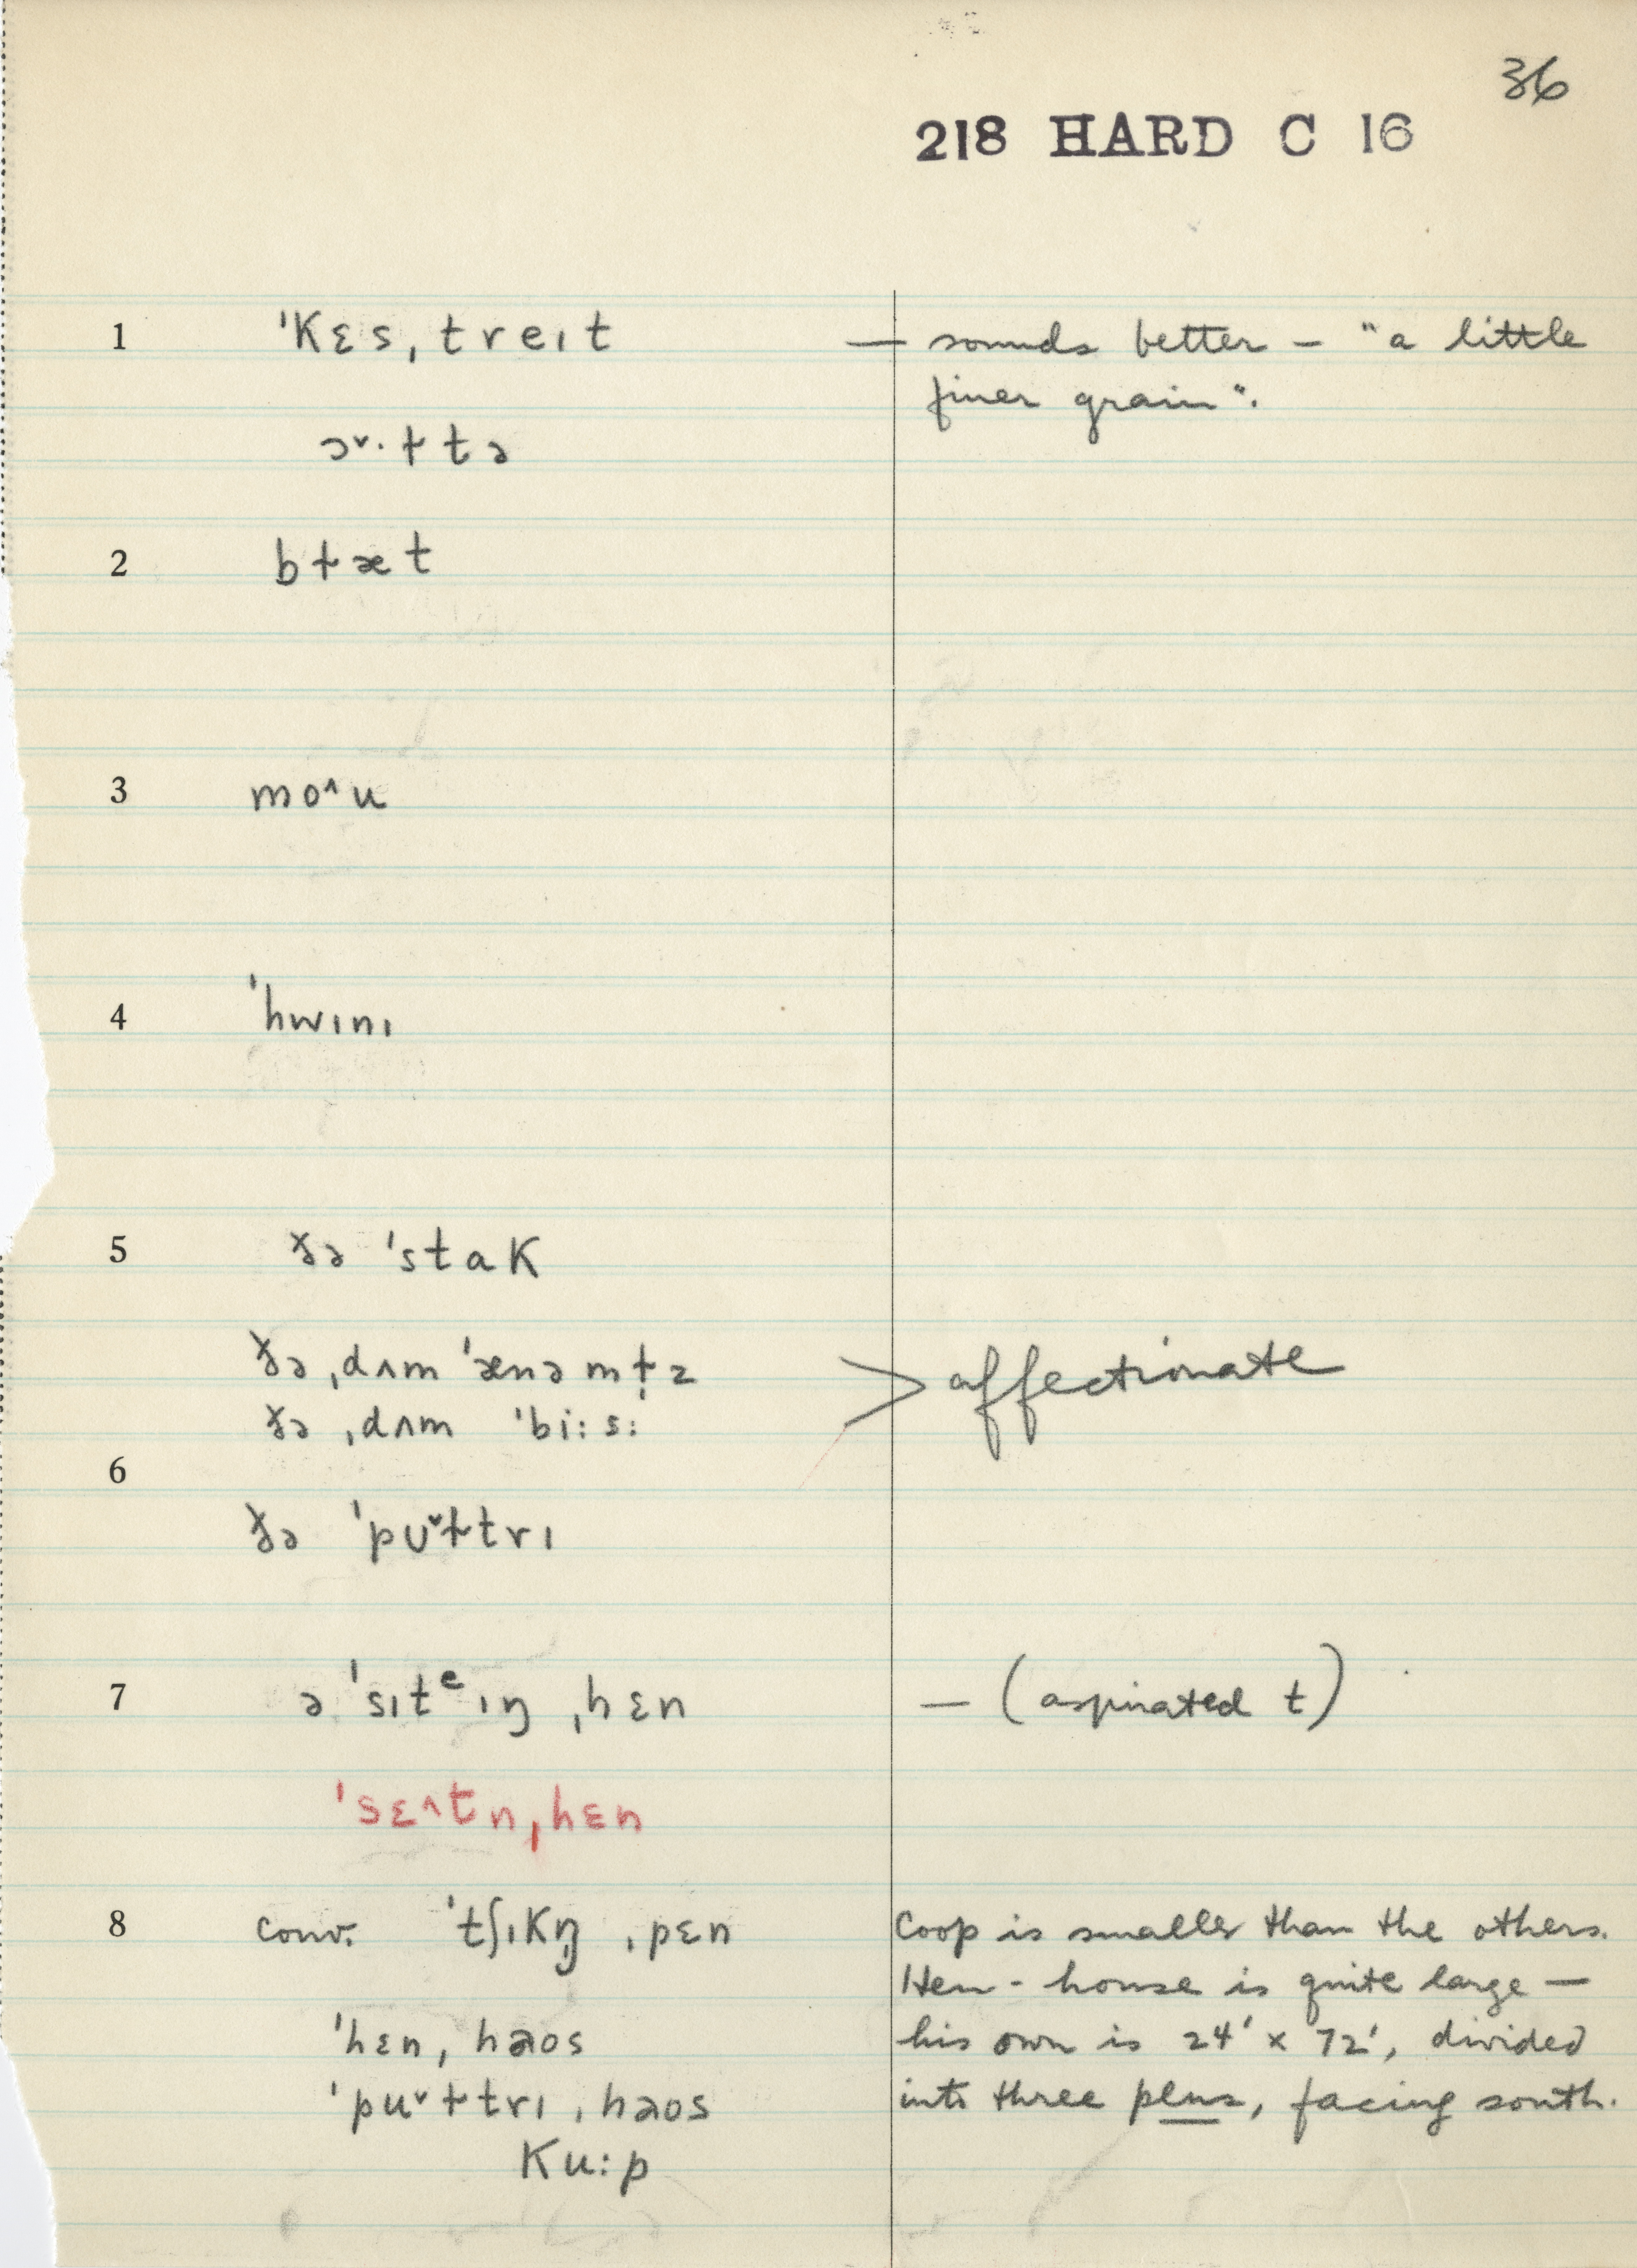 36
218 HARD C 16
1 ˈkɛsˌtreɪt — sounds better – "a little
finer grain".
ɔˇ·ɫtə
2 bɫæt
3 mo^u
4 ˈhwɪnɪ
5 ðə ˈstak
ðə ˌdʌm ˈænəmɫ̩z > affectionate
ðə ˌdʌm ˈbi:s:
6
ðə ˈpʊˇɫtrɪ
7 ə ˈsɪtᵉɪŋ ˌhɛn — (aspirated t)
ˈsɛ^tnˌhɛn
8 conv. ˈtʃɪkŋ̩ ˌpɛn Coop is smaller than the others.
Hen-house is quite large —
ˈhɛnˌhaos his own is 24' x 72', divided
ˈpʊˇɫtrɪˌhaos into three pens, facing south.
Ku:p